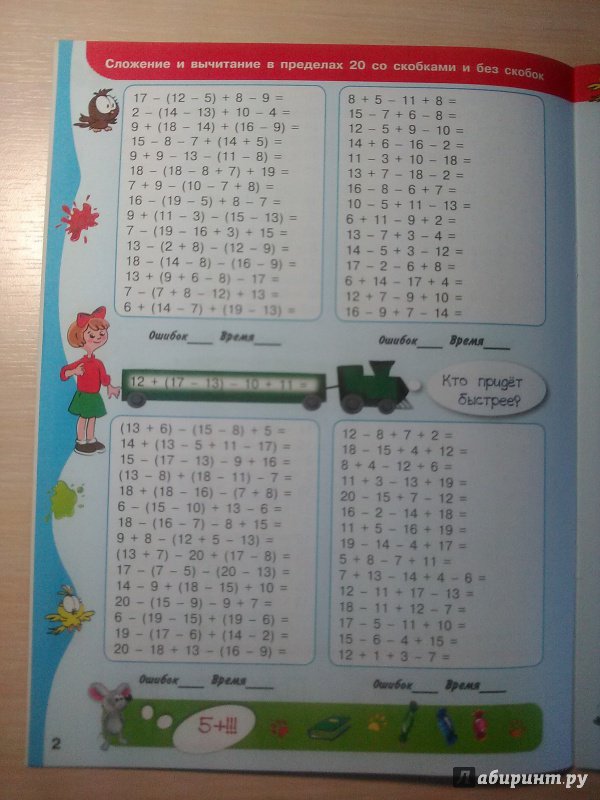 Сложение и вычитание в пределах 20 со скобками и без скобок
17 – (12 – 5) + 8 – 9 =
2 – (14 – 13) + 10 – 4 =
9 + (18 – 14) + (16 – 9) =
15 – 8 – 7 + (14 + 5) =
9 + 9 – 13 – (11 – 8) =
18 – (18 – 8 + 7) + 19 =
7 + 9 – (10 – 7 + 8) =
16 – (19 – 5) + 8 – 7 =
9 + (11 – 3) – (15 – 13) =
7 – (19 – 16 + 3) + 15 =
13 – (2 + 8) – (12 – 9) =
18 – (14 – 8) – (16 – 9) =
13 + (9 + 6 – 8) – 17 =
7 – (7 + 8 – 12) + 13 =
6 + (14 – 7) + (19 – 13) =
Ошибок____ Время____
8 + 5 – 11 + 8 =
15 – 7 + 6 – 8 =
12 – 5 + 9 – 10 =
14 + 6 – 16 – 2 =
11 – 3 + 10 – 18 =
13 + 7 – 18 – 2 =
16 – 8 – 6 + 7 =
10 – 5 + 11 – 13 =
6 + 11 – 9 + 2 =
13 – 7 + 3 – 4 =
14 – 5 + 3 – 12 =
17 – 2 – 6 + 8 =
6 + 14 – 17 + 4 =
12 + 7 – 9 + 10 =
16 – 9 + 7 – 14 =
Ошибок____ Время____
12 + (17 – 13) – 10 + 11 =
Кто придёт
быстрее?
(13 + 6) – (15 – 8) + 5 =
14 + (13 – 5 + 11 – 17) =
15 – (17 – 13) – 9 + 16 =
(13 – 8) + (18 – 11) – 7 =
18 + (18 – 16) – (7 + 8) =
6 – (15 – 10) + 13 – 6 =
18 – (16 – 7) – 8 + 15 =
9 + 8 – (12 + 5 – 13) =
(13 + 7) – 20 + (17 – 8) =
17 – (7 – 5) – (20 – 13) =
14 – 9 + (18 – 15) + 10 =
20 – (15 – 9) – 9 + 7 =
6 – (19 – 15) + (19 – 6) =
19 – (17 – 6) + (14 – 2) =
20 – 18 + 13 – (16 – 9) =
Ошибок____ Время____
12 – 8 + 7 + 2 =
18 – 15 + 4 + 12 =
8 + 4 – 12 + 6 =
11 + 3 – 13 + 19 =
20 – 15 + 7 – 12 =
16 – 2 – 14 + 18 =
11 + 5 – 16 + 19 =
19 – 14 – 4 + 17 =
5 + 8 – 7 + 11 =
7 + 13 – 14 + 4 – 6 =
12 – 11 + 17 – 13 =
18 – 11 + 12 – 7 =
17 – 5 – 11 + 10 =
15 – 6 – 4 + 15 =
12 + 1 + 3 – 7 =
Ошибок____ Время____
5+!!!
2
Лабиринт.ру